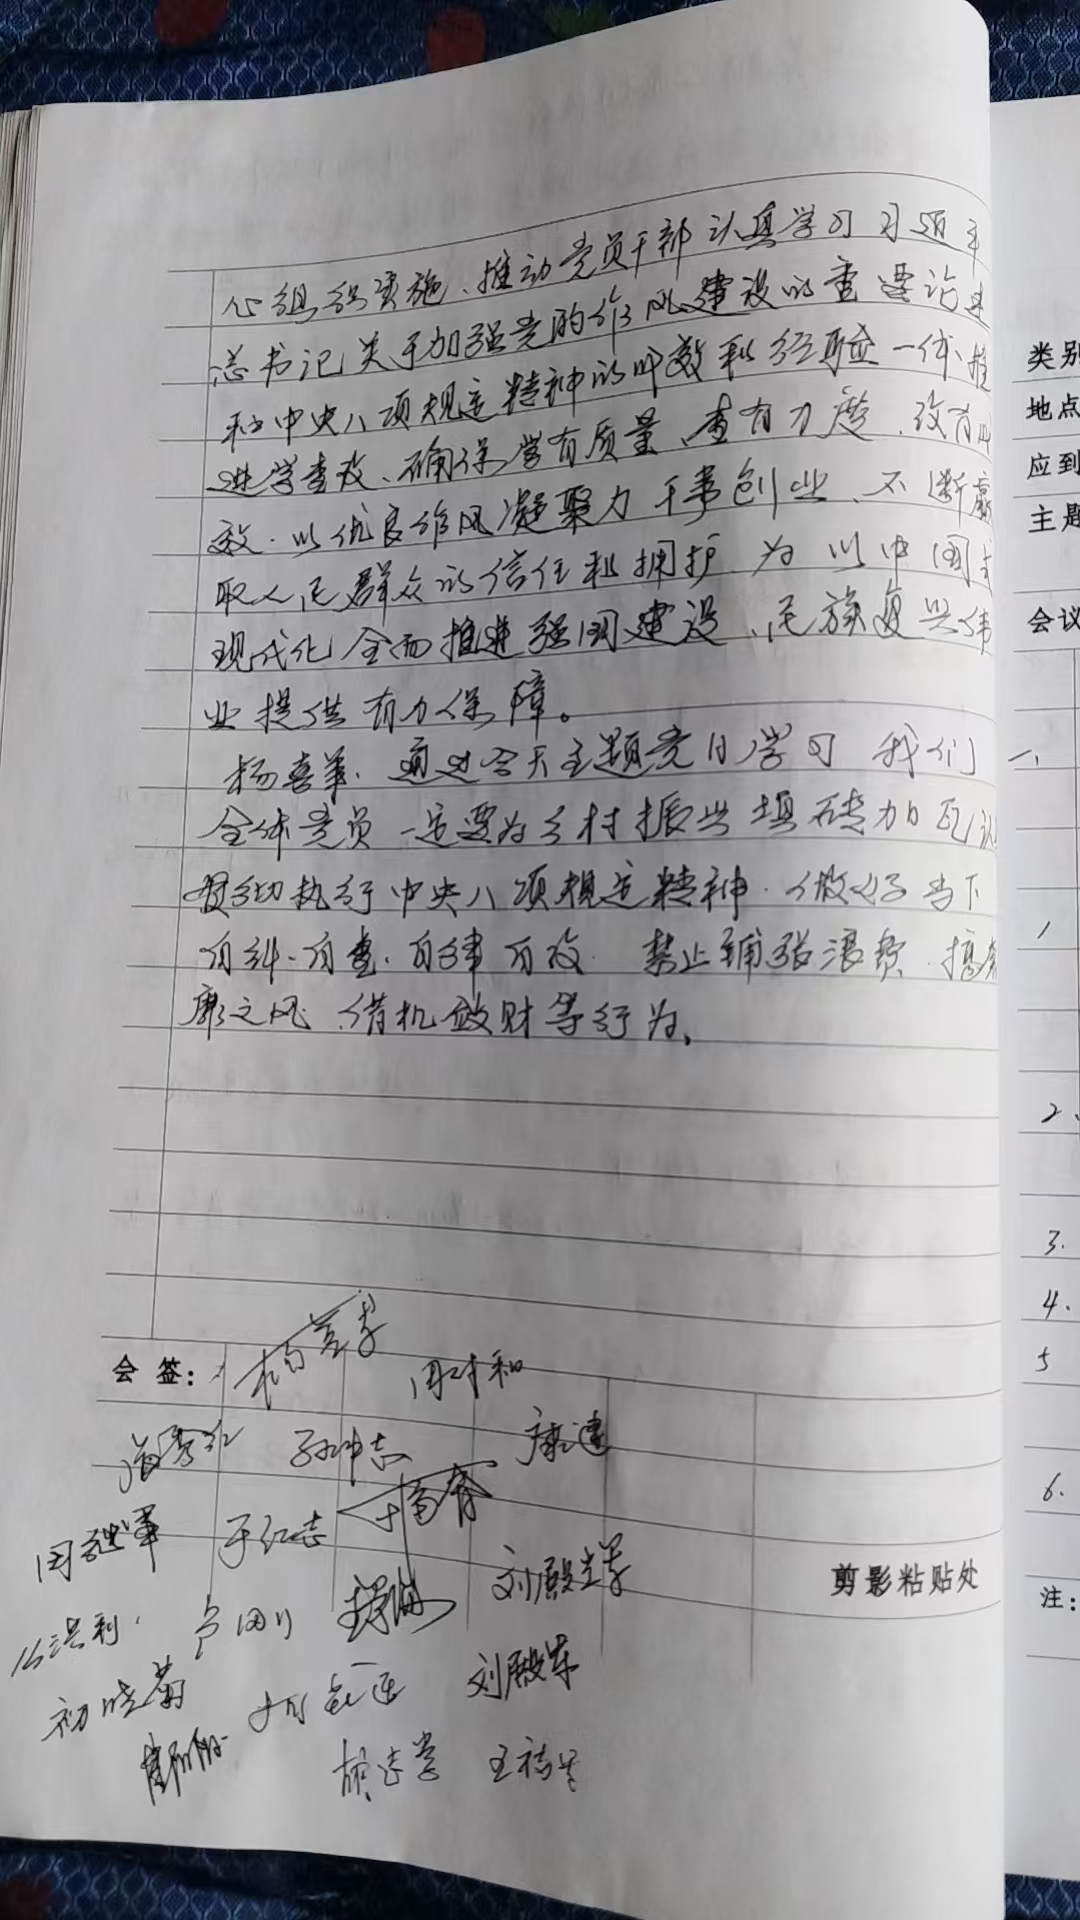 心组织实施、推动党员干部认真学习习近平
总书记关于加强党的作风建设的重要论述
和中央八项规定精神的成效和经验一体推
进学查改、确保学有质量、查有力度、改有成
效.以优良作风凝聚力干事创业、不断赢
取人民群众的信任和拥护 为以中国式
现代化全面推进强国建设、民族复兴伟
业提供有力保障。
杨喜革、通过今天主题党日学习 我们
全体党员一定要为乡村振兴填砖加瓦
执行中央八项规定精神.做好当下
有纠.有查.有律有改. 禁止铺张浪费.
之风、借机敛财等行为.
会签:
周树和
孙忠志
康建
周继革 于仁志
刘殿学
初晓菊
刘殿军
胡志学
剪影粘贴处
类别
地点
应到
主题
会议
一、
1
2、
3.
4.
5
6.
注: